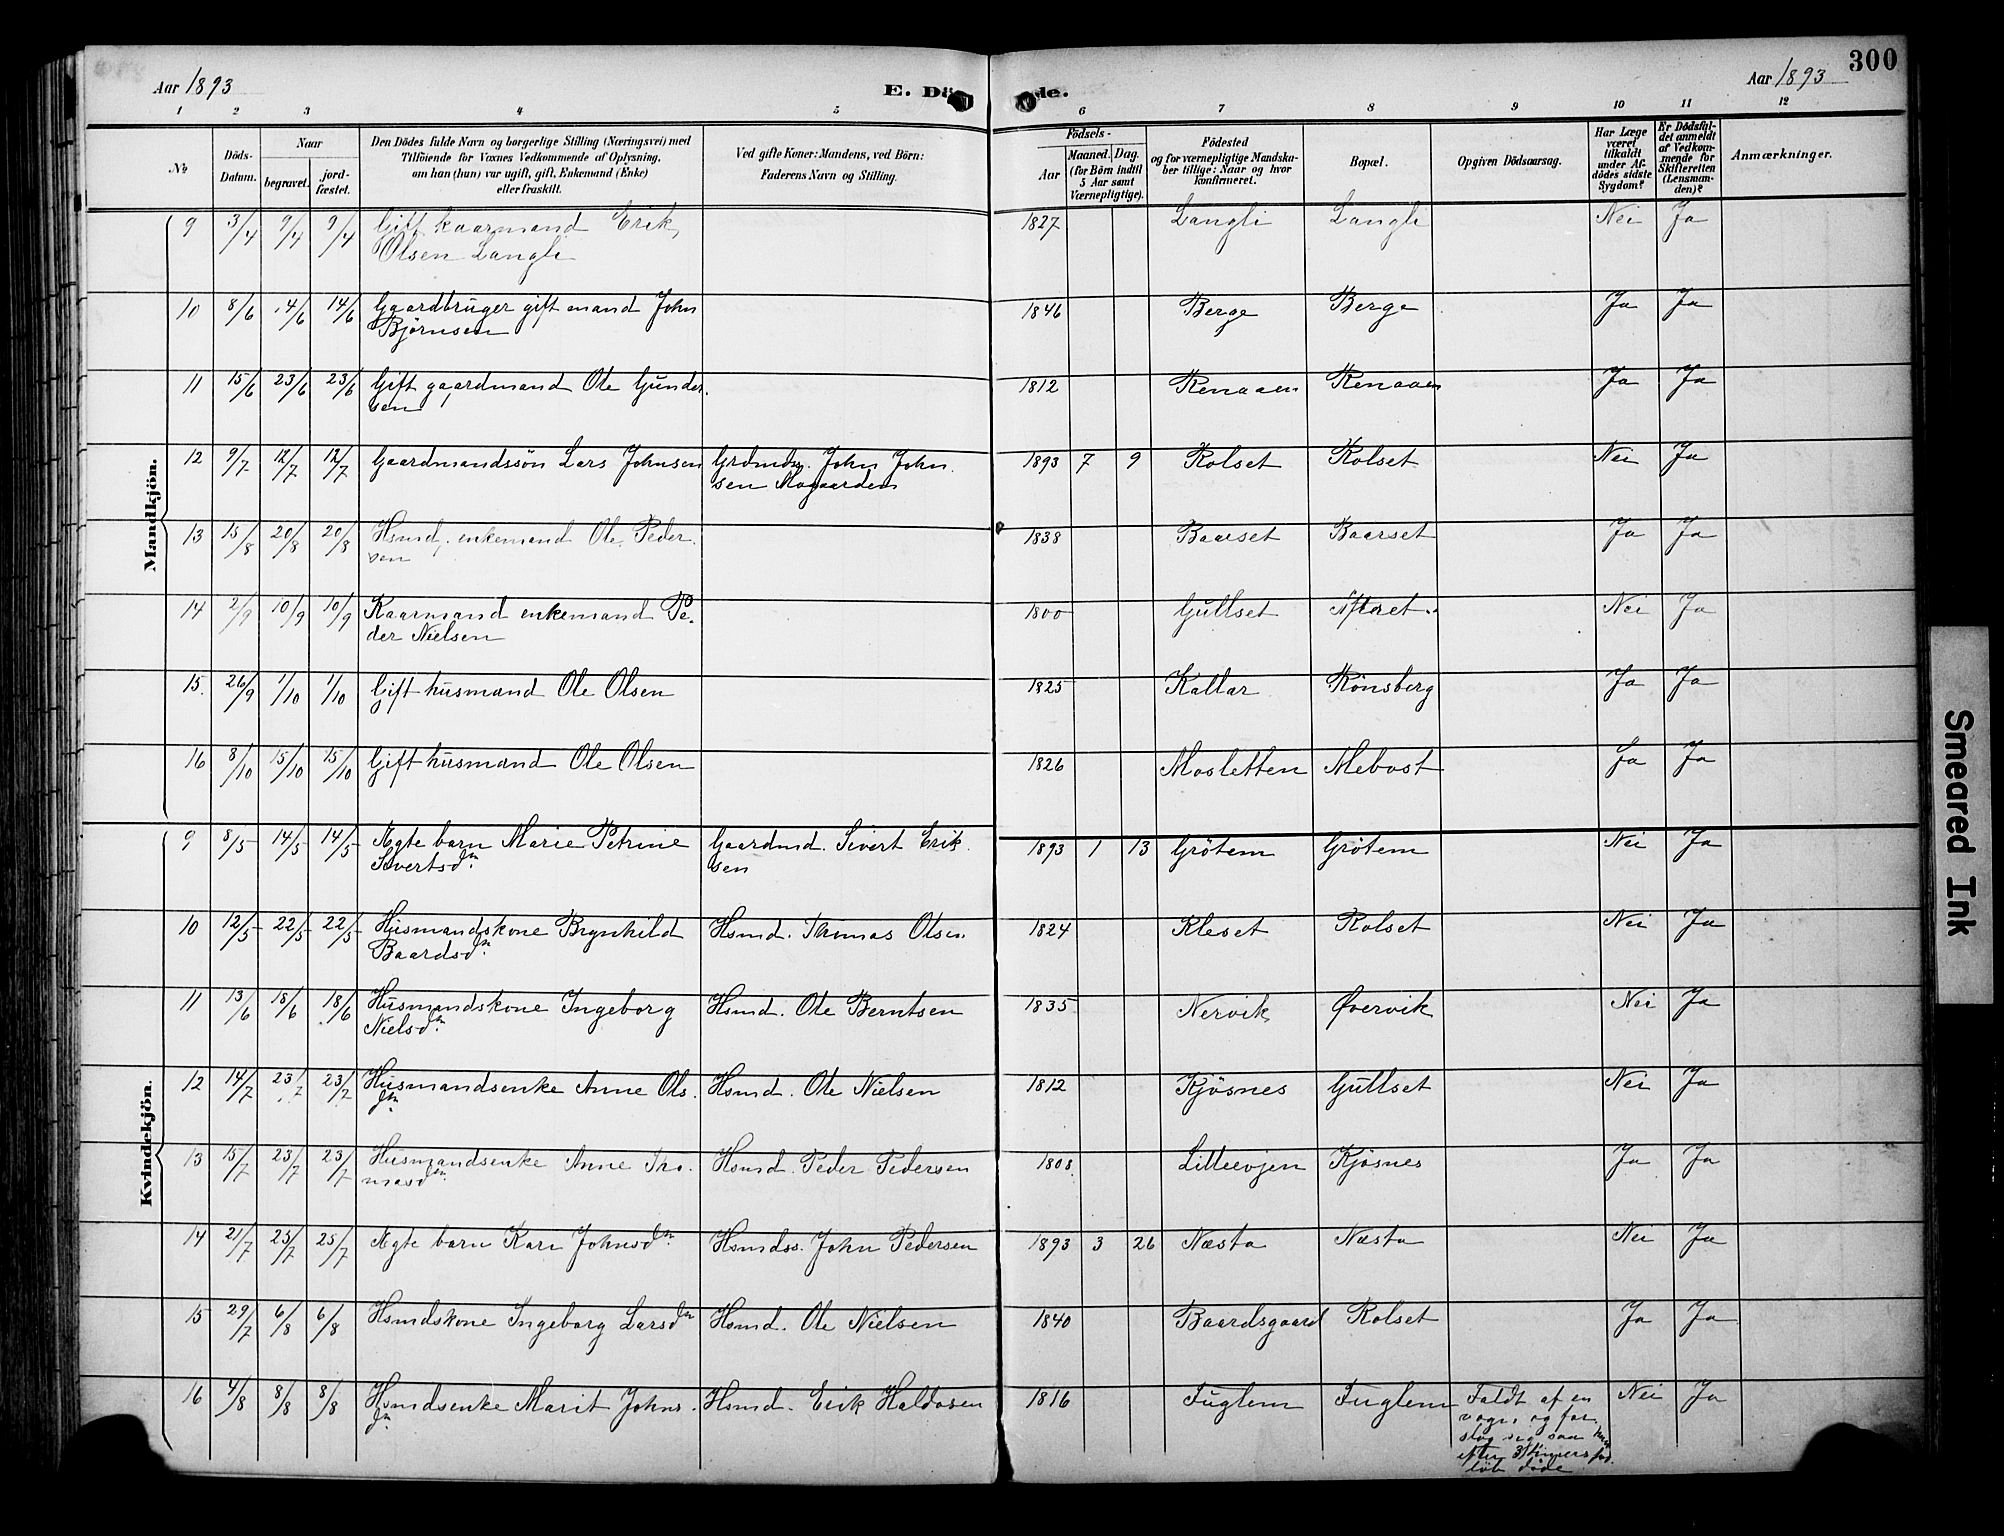 300
Aar 1893
E. Dö
de.
Aar 1893
1 2 3 4 5 6 7 8 9 10 11 12
No
Döds-
Datum.
Naar
begravet.
jord-
fæstet.
Den Dödes fulde Navn og borgerlige Stilling (Næringsvei) med
Tilföiende for Voxnes Vedkommende af Oplysning,
om han (hun) var ugift, gift, Enkemand (Enke)
eller fraskilt.
Ved gifte Koner: Mandens, ved Börn:
Faderens Navn og Stilling.
Födsels-
Aar
Maaned. Dag.
(for Börn indtil
5 Aar samt
Værnepligtige).
Födested
og for værnepligtige Mandska-
ber tillige: Naar og hvor
konfirmeret.
Bopæl.
Opgiven Dödsaarsag.
Har Læge
været
tilkaldt
under Af-
dödes sidste
Sygdom?
Er Dödsfal-
det anmeldt
af Vedkom-
mende for
Skifteretten
(Lensman-
den)?
Anmærkninger.
Mandkjön.
9 3/4 9/4 9/4 Gift kaarmand Erik 1827 Langli Langli Nei Ja
Olsen Langli
10 8/6 14/6 14/6 Gaardbruger gift mand John 1846 Berge Berge Ja Ja
Björnsen
11 15/6 23/6 23/6 Gift gaardmand Ole Gunder 1812 Renaaen Renaaen Ja Ja
sen
12 9/7 12/7 12/7 Gaardmandssön Lars Johnsen Grdmds. John John 1893 7 9 Rolset Rolset Nei Ja
sen Mogaarden
13 15/8 20/8 20/8 Hsmd, enkemand Ole Peder 1838 Baarset Baarset Ja Ja
sen
14 2/9 10/9 10/9 Kaarmand enkemand Pe- 1800 Gullset Aftret Nei Ja
der Nielsen
15. 26/9 1/10 1/10 Gift husmand Ole Olsen 1825 Kallar Rönsberg Ja Ja
16 8/10 15/10 15/10 Gift husmand Ole Olsen 1826 Mosletten Mebost Ja Ja
Kvindekjön.
9 8/5 14/5 14/5 Ægte barn Marie Petrine Gaardmd. Sivert Erik 1893 1 13 Grötem Grötem Nei Ja
Sivertsdtr sen
10 12/5 22/5 22/5 Husmandskone Brynhild Hsmd. Thomas Olsen 1824 Kleset Rolset Nei Ja
Baardsdtr
11 13/6 18/6 18/6 Husmandskone Ingeborg Hsmd. Ole Berntsen 1835 Nervik Øvervik Nei Ja
Nielsdtr
12 14/7 23/7 23/7 Husmandsenke Anne Ols Hsmd. Ole Nielsen 1812 Kjösnes Gullset Nei Ja
dtr
13 15/7 23/7 23/7 Husmandsenke Anne Tho Hsmd. Peder Pedersen 1808 Litleevjen Kjösnes Ja Ja
masdtr
14 21/7 25/7 25/7 Ægte barn Kari Johnsdtr Hsmdss. John Pedersen 1893 3 26 Næsta Næsta Nei Ja
15 29/7 6/8 6/8 Hsmdskone Ingeborg Larsdtr Hsmd. Ole Nielsen 1840 Baardsgaard Rolset Ja Ja
16 4/8 8/8 8/8 Hsmdsenke Marit Johns Hsmd. Erik Haldosen 1816 Fuglem Fuglem Faldt af en Nei Ja
dtr vogn og for
slog sig saa hun
efter 3 timers for
löb döde
Smeared Ink